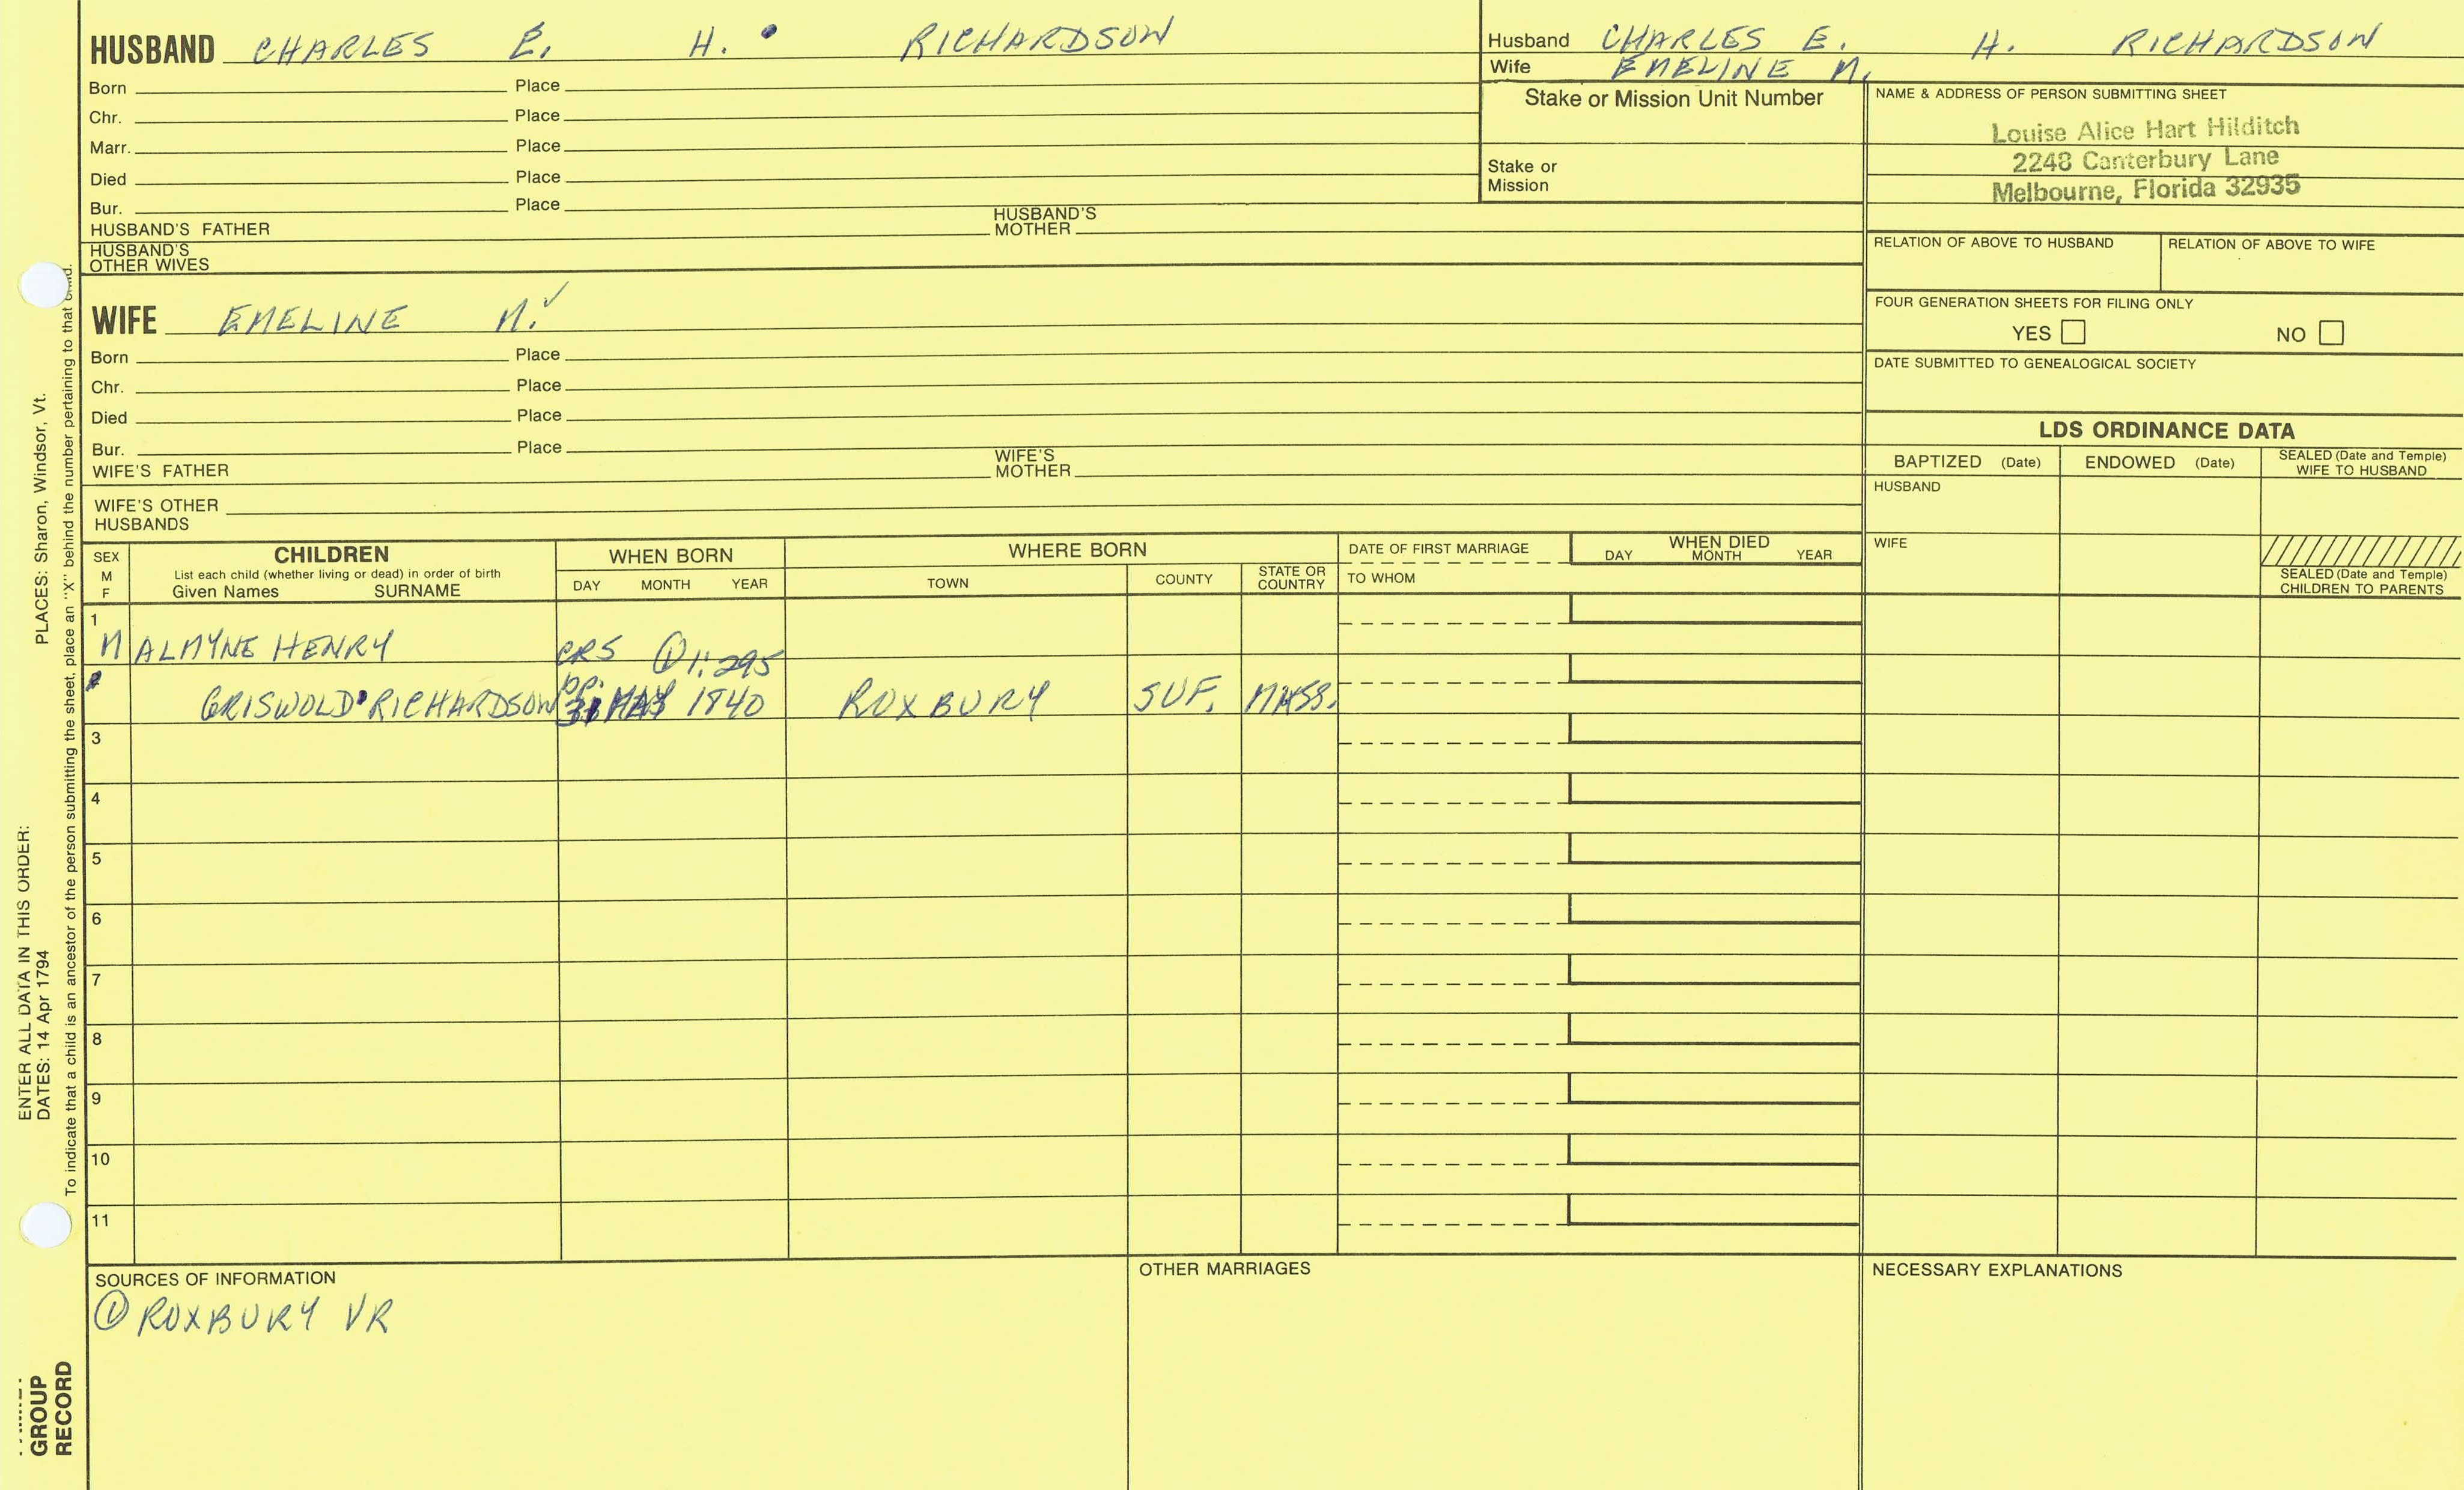 HUSBAND CHARLES E. H. RICHARDSON
Born Place
Chr. Place
Marr. Place
Died Place
Bur. Place
HUSBAND'S FATHER HUSBAND'S MOTHER
HUSBAND'S OTHER WIVES
WIFE EMELINE M. ✓
Born Place
Chr. Place
Died Place
Bur. Place
WIFE'S FATHER WIFE'S MOTHER
WIFE'S OTHER HUSBANDS
Husband CHARLES E. H. RICHARDSON
Wife EMELINE M.
Stake or Mission Unit Number
Stake or Mission
NAME & ADDRESS OF PERSON SUBMITTING SHEET
Louise Alice Hart Hilditch
2248 Canterbury Lane
Melbourne, Florida 32935
RELATION OF ABOVE TO HUSBAND RELATION OF ABOVE TO WIFE
FOUR GENERATION SHEETS FOR FILING ONLY
YES NO
DATE SUBMITTED TO GENEALOGICAL SOCIETY
LDS ORDINANCE DATA
BAPTIZED (Date) ENDOWED (Date) SEALED (Date and Temple) WIFE TO HUSBAND
HUSBAND
WIFE
SEALED (Date and Temple) CHILDREN TO PARENTS
SEX M F
CHILDREN
List each child (whether living or dead) in order of birth
Given Names SURNAME
WHEN BORN
DAY MONTH YEAR
WHERE BORN
TOWN COUNTY STATE OR COUNTRY
DATE OF FIRST MARRIAGE
TO WHOM
WHEN DIED
DAY MONTH YEAR
1
M ALMYNE HENRY CR5 ① 1:295
bp.
GRISWOLD RICHARDSON 31 MAY 1840 ROXBURY SUF. MASS.
3
4
5
6
7
8
9
10
11
SOURCES OF INFORMATION
① ROXBURY VR
OTHER MARRIAGES
NECESSARY EXPLANATIONS
ENTER ALL DATA IN THIS ORDER:
DATES: 14 Apr 1794 PLACES: Sharon, Windsor, Vt.
To indicate that a child is an ancestor of the person submitting the sheet, place an "X" behind the number pertaining to that child.
GROUP
RECORD